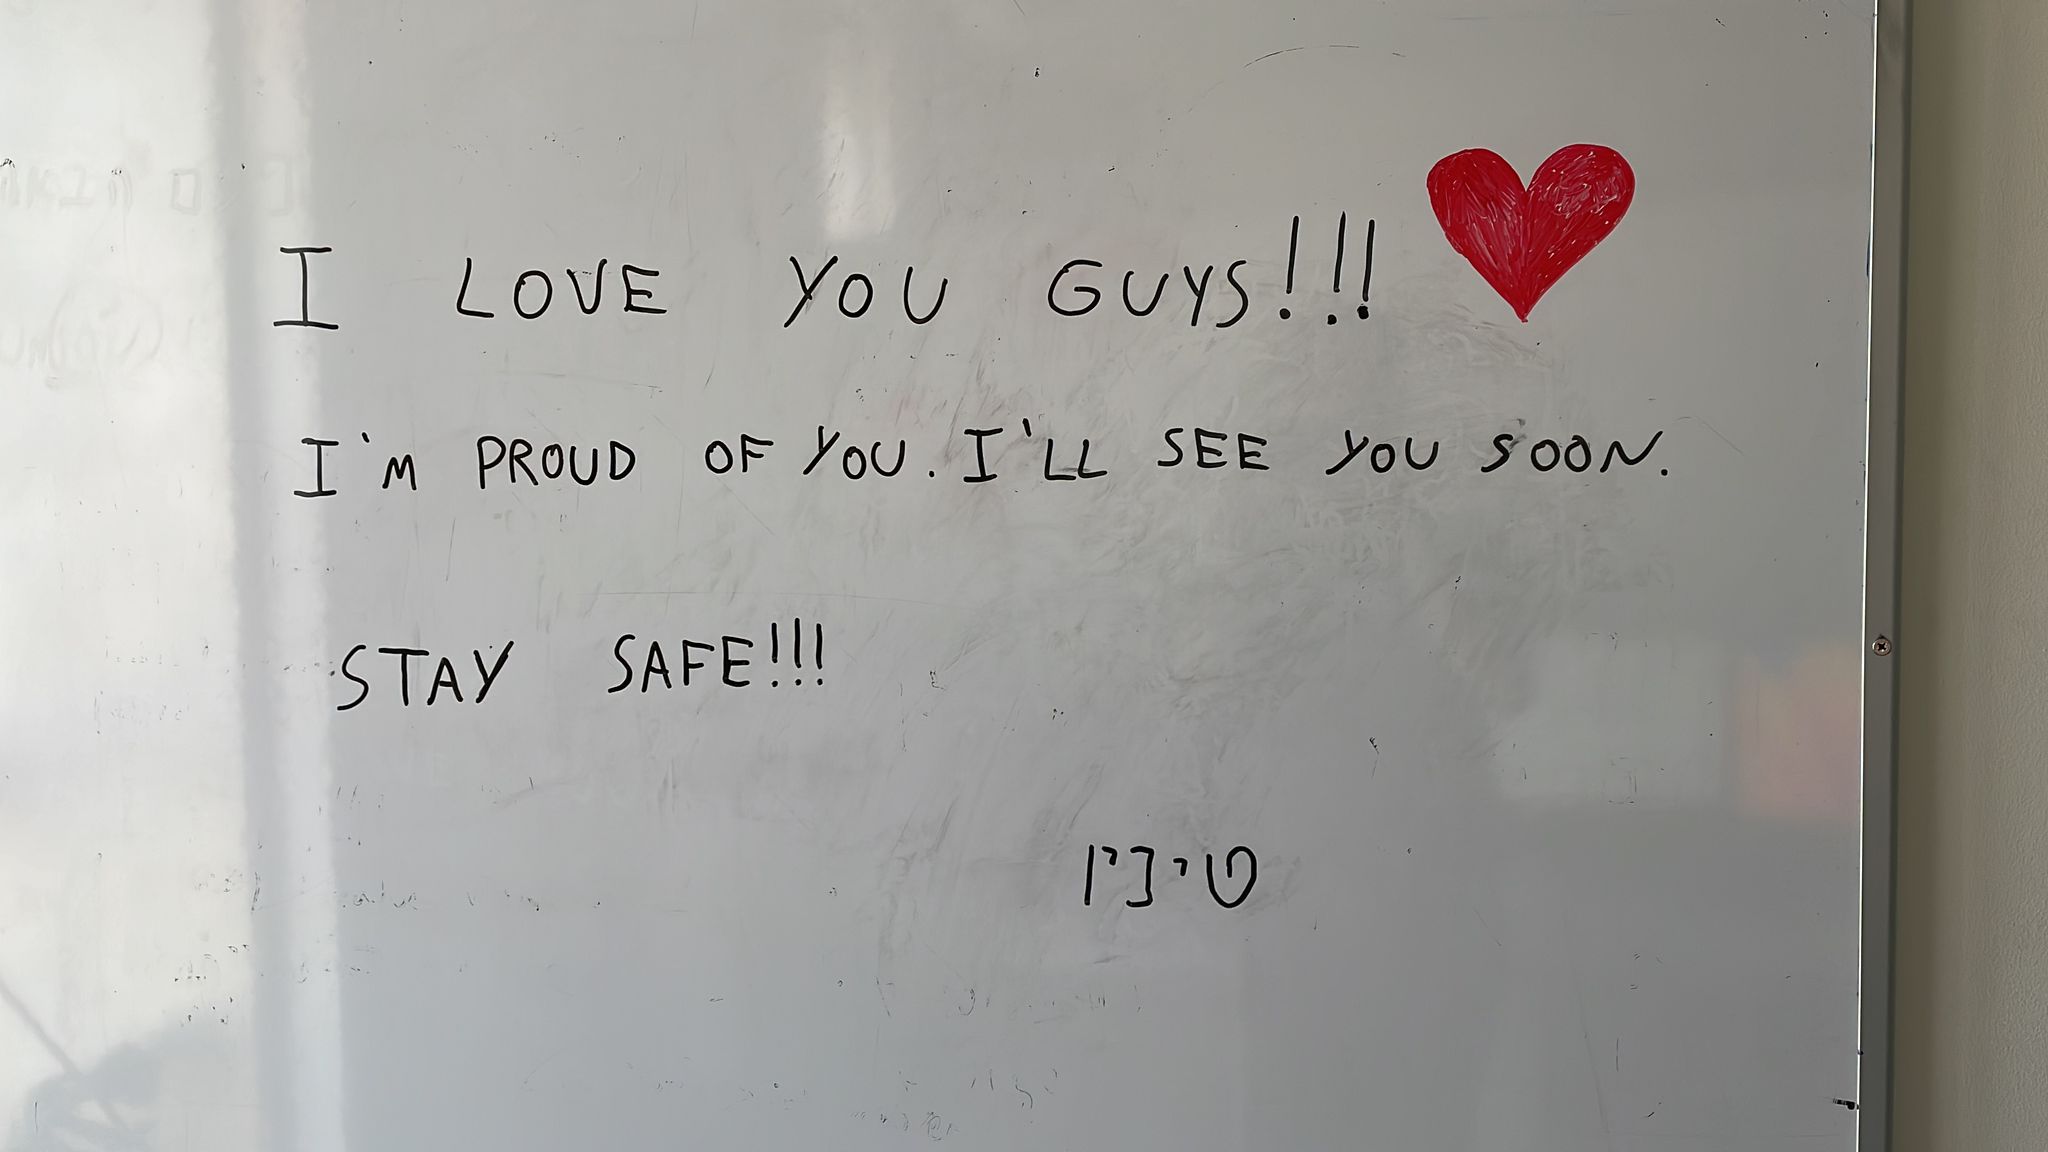 I LOVE YOU GUYS!!!
I'M PROUD OF YOU. I'LL SEE YOU SOON.
STAY SAFE!!!